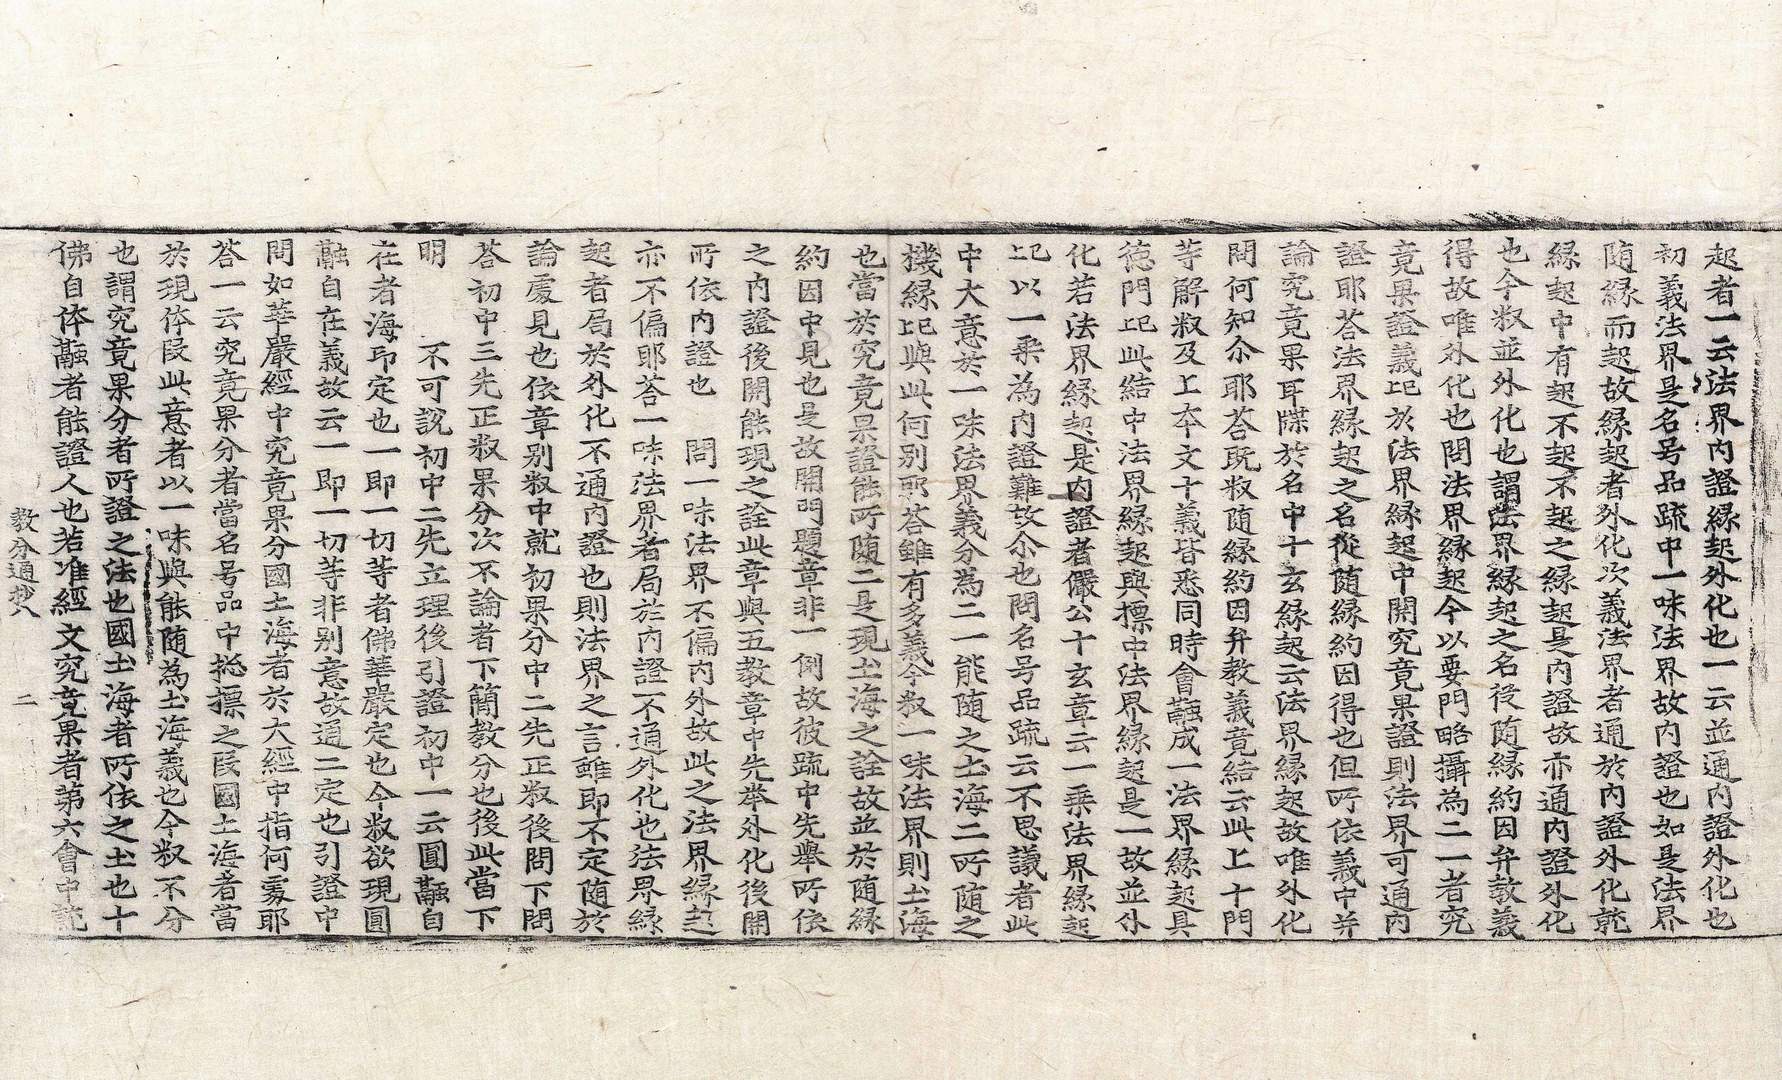 起者一云法界內證緣起外化也一云並通內證外化也
初義法界是名号品䟽中一味法界故內證也如是法界
随緣而起故緣起者外化次義法界者通於內證外化乾
緣起中有起不起不起之緣起是內證故亦通內證外化
也今叙並外化也謂法界緣起之名從随緣約因弁教義
得故唯外化也問法界緣起今以要門略攝為二一者究
竟果證義[⿰止巳]於法界緣起中開究竟果證則法界可通內
證耶荅法界緣起之名從随緣約因得也但所依義中并
論究竟果耳牒於名中十玄緣起云法界緣起故唯外化
問何知尒耶荅旣叙随緣約因弁教義竟結云此上十門
等解叙及上夲文十義皆悉同時會融成一法界緣起具
德門[⿰止巳]此結中法界緣起與摽中法界緣起是一故並外
化若法界緣起是內證者儼公十玄章云一乘法界緣起
[⿰止巳]以一乘為內證難故尒也問名号品䟽云不思議者此
中大意於一味法界義分為二一能随之土海二所随之
機緣[⿰止巳]與此何別耶荅雖有多義今叙一味法界則土海
也當於究竟果證能所随二是現土海之詮故並於随緣
約因中見也是故開門題章非一例故彼䟽中先舉所依
之內證後開能現之詮此章與五教章中先举外化後開
所依內證也　問一味法界不偏內外故此之法界緣起
亦不偏耶荅一味法界者局於內證不通外化也法界緣
起者局於外化不通內證也則法界之言雖即不定随於
論處見也依章别叙中就初果分中二先正叙後問下問
荅初中三先正叙果分次不論者下簡教分也後此當下
明　不可說初中二先立理後引證初中一云圓融自
在者海印定也一即一切等者佛華嚴定也今叙欲現圓
融自在義故云一即一切等非别意故通二定也引證中
問如華嚴經中究竟果分國土海者於大經中指何處耶
荅一云究竟果分者當名号品中摠摽之段國土海者當
於現体段此意者以一味與能随為土海義也今叙不分
也謂究竟果分者所證之法也國土海者所依之土也十
佛自体融者能證人也若准經文究竟果者第六會中說
教分通抄八　二